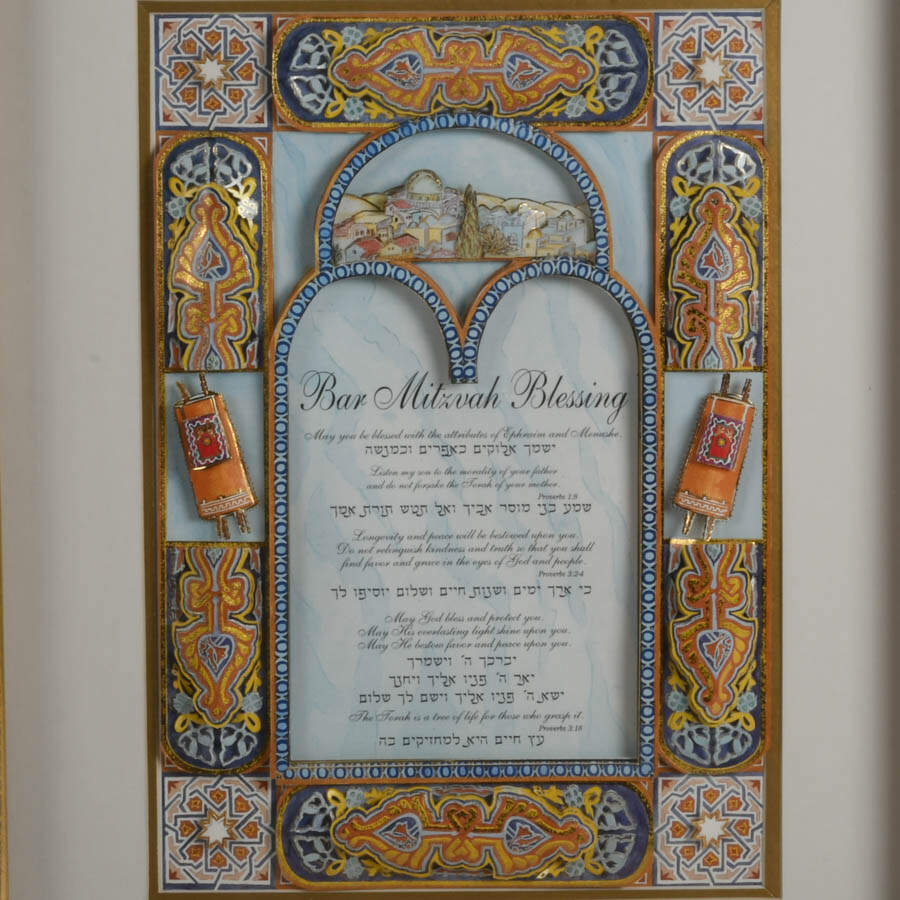 Bar Mitzvah Blessing
May you be blessed with the attributes of Ephraim and Menashe.
ישמך אלוקים כאפרים וכמנשה
Listen my son to the morality of your father
and do not forsake the Torah of your mother.
Proverbs 1:8
שמע בני מוסר אביך ואל תטש תורת אמך
Longevity and peace will be bestowed upon you.
Do not relinguish kindness and truth so that you shall
find favor and grace in the eyes of God and people.
Proverbs 3:2-4
כי ארך ימים ושנות חיים ושלום יוסיפו לך
May God bless and protect you.
May His everlasting light shine upon you.
May He bestow favor and peace upon you.
יברכך ה' וישמרך
יאר ה' פניו אליך ויחנך
ישא ה' פניו אליך וישם לך שלום
The Torah is a tree of life for those who grasp it.
Proverbs 3:18
עץ חיים היא למחזיקים בה